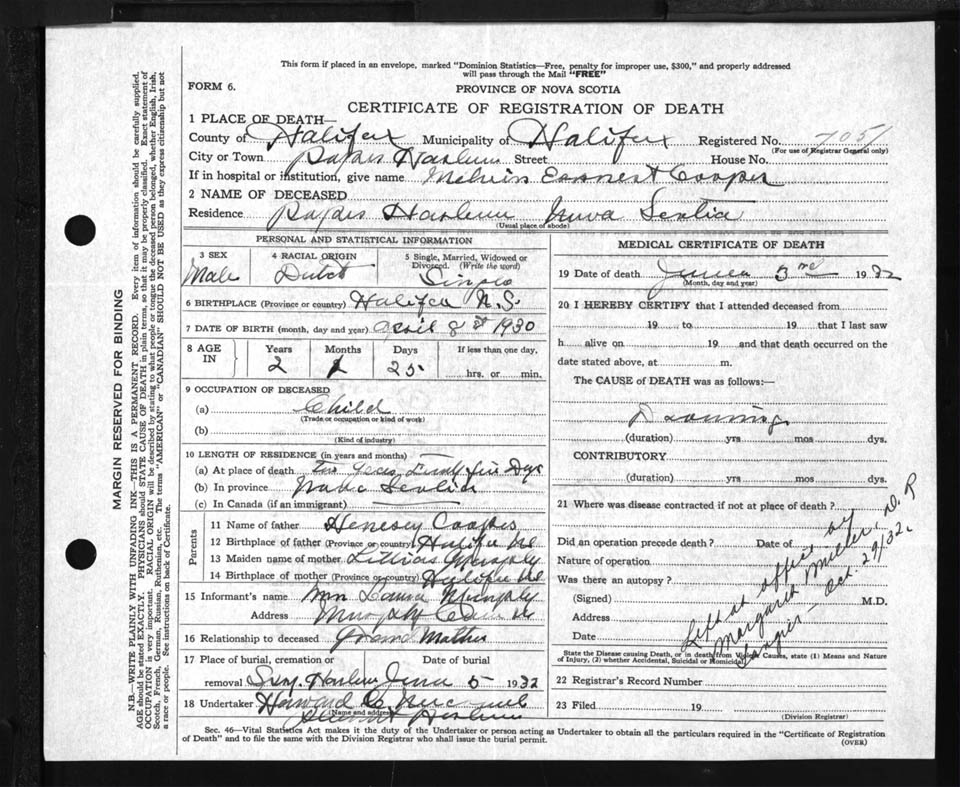 This form if placed in an envelope, marked "Dominion Statistics—Free, penalty for improper use, $300," and properly addressed
will pass through the Mail "FREE"
FORM 6.
PROVINCE OF NOVA SCOTIA
CERTIFICATE OF REGISTRATION OF DEATH
1 PLACE OF DEATH—
County of Halifax Municipality of Halifax Registered No. 7051
(For use of Registrar General only)
City or Town Street House No.
If in hospital or institution, give name Melvin Earnest Cooper
2 NAME OF DECEASED
Residence
(Usual place of abode)
PERSONAL AND STATISTICAL INFORMATION
3 SEX Male
4 RACIAL ORIGIN Dutch
5 Single, Married, Widowed or Divorced. (Write the word)
6 BIRTHPLACE (Province or country) Halifax N.S.
7 DATE OF BIRTH (month, day and year) April 8 1930
8 AGE IN
Years Months Days If less than one day,
2 25 hrs. or min.
9 OCCUPATION OF DECEASED
(a) Child
(Trade or occupation or kind of work)
(b)
(Kind of industry)
10 LENGTH OF RESIDENCE (in years and months)
(a) At place of death
(b) In province
(c) In Canada (if an immigrant)
Parents
11 Name of father
12 Birthplace of father (Province or country)
13 Maiden name of mother
14 Birthplace of mother (Province or country)
15 Informant's name
Address
16 Relationship to deceased Grand Mother
17 Place of burial, cremation or removal
Date of burial
June 5 1932
18 Undertaker Howard
(Name and address)
MEDICAL CERTIFICATE OF DEATH
19 Date of death 3rd 1932
(Month, day and year)
20 I HEREBY CERTIFY that I attended deceased from
19 to 19 that I last saw
h alive on 19 and that death occurred on the
date stated above, at m.
The CAUSE of DEATH was as follows:—
Drowning
(duration) yrs mos dys.
CONTRIBUTORY
(duration) yrs mos dys.
21 Where was disease contracted if not at place of death?
Did an operation precede death? Date of
Nature of operation
Was there an autopsy?
(Signed) M.D.
Address
Date
Left at office by
Margaret
Oct. 29/32
State the Disease causing Death, or in death from Violent Causes, state (1) Means and Nature
of Injury, (2) whether Accidental, Suicidal or Homicidal.
22 Registrar's Record Number
23 Filed 19
(Division Registrar)
Sec. 46—Vital Statistics Act makes it the duty of the Undertaker or person acting as Undertaker to obtain all the particulars required in the "Certificate of Registration
of Death" and to file the same with the Division Registrar who shall issue the burial permit.
(OVER)
MARGIN RESERVED FOR BINDING
N.B.—WRITE PLAINLY WITH UNFADING INK—THIS IS A PERMANENT RECORD. Every item of information should be carefully supplied.
AGE should be stated EXACTLY. PHYSICIANS should STATE CAUSE OF DEATH in plain terms, so that it may be properly classified. Exact statement of
OCCUPATION is very important. RACIAL ORIGIN will be described by stating to what people or tongue the deceased person belonged, whether English, Irish,
Scotch, French, German, Russian, Ruthenian, etc. The terms "AMERICAN" or "CANADIAN" SHOULD NOT BE USED as they express citizenship but not
a race or people. See instructions on back of Certificate.